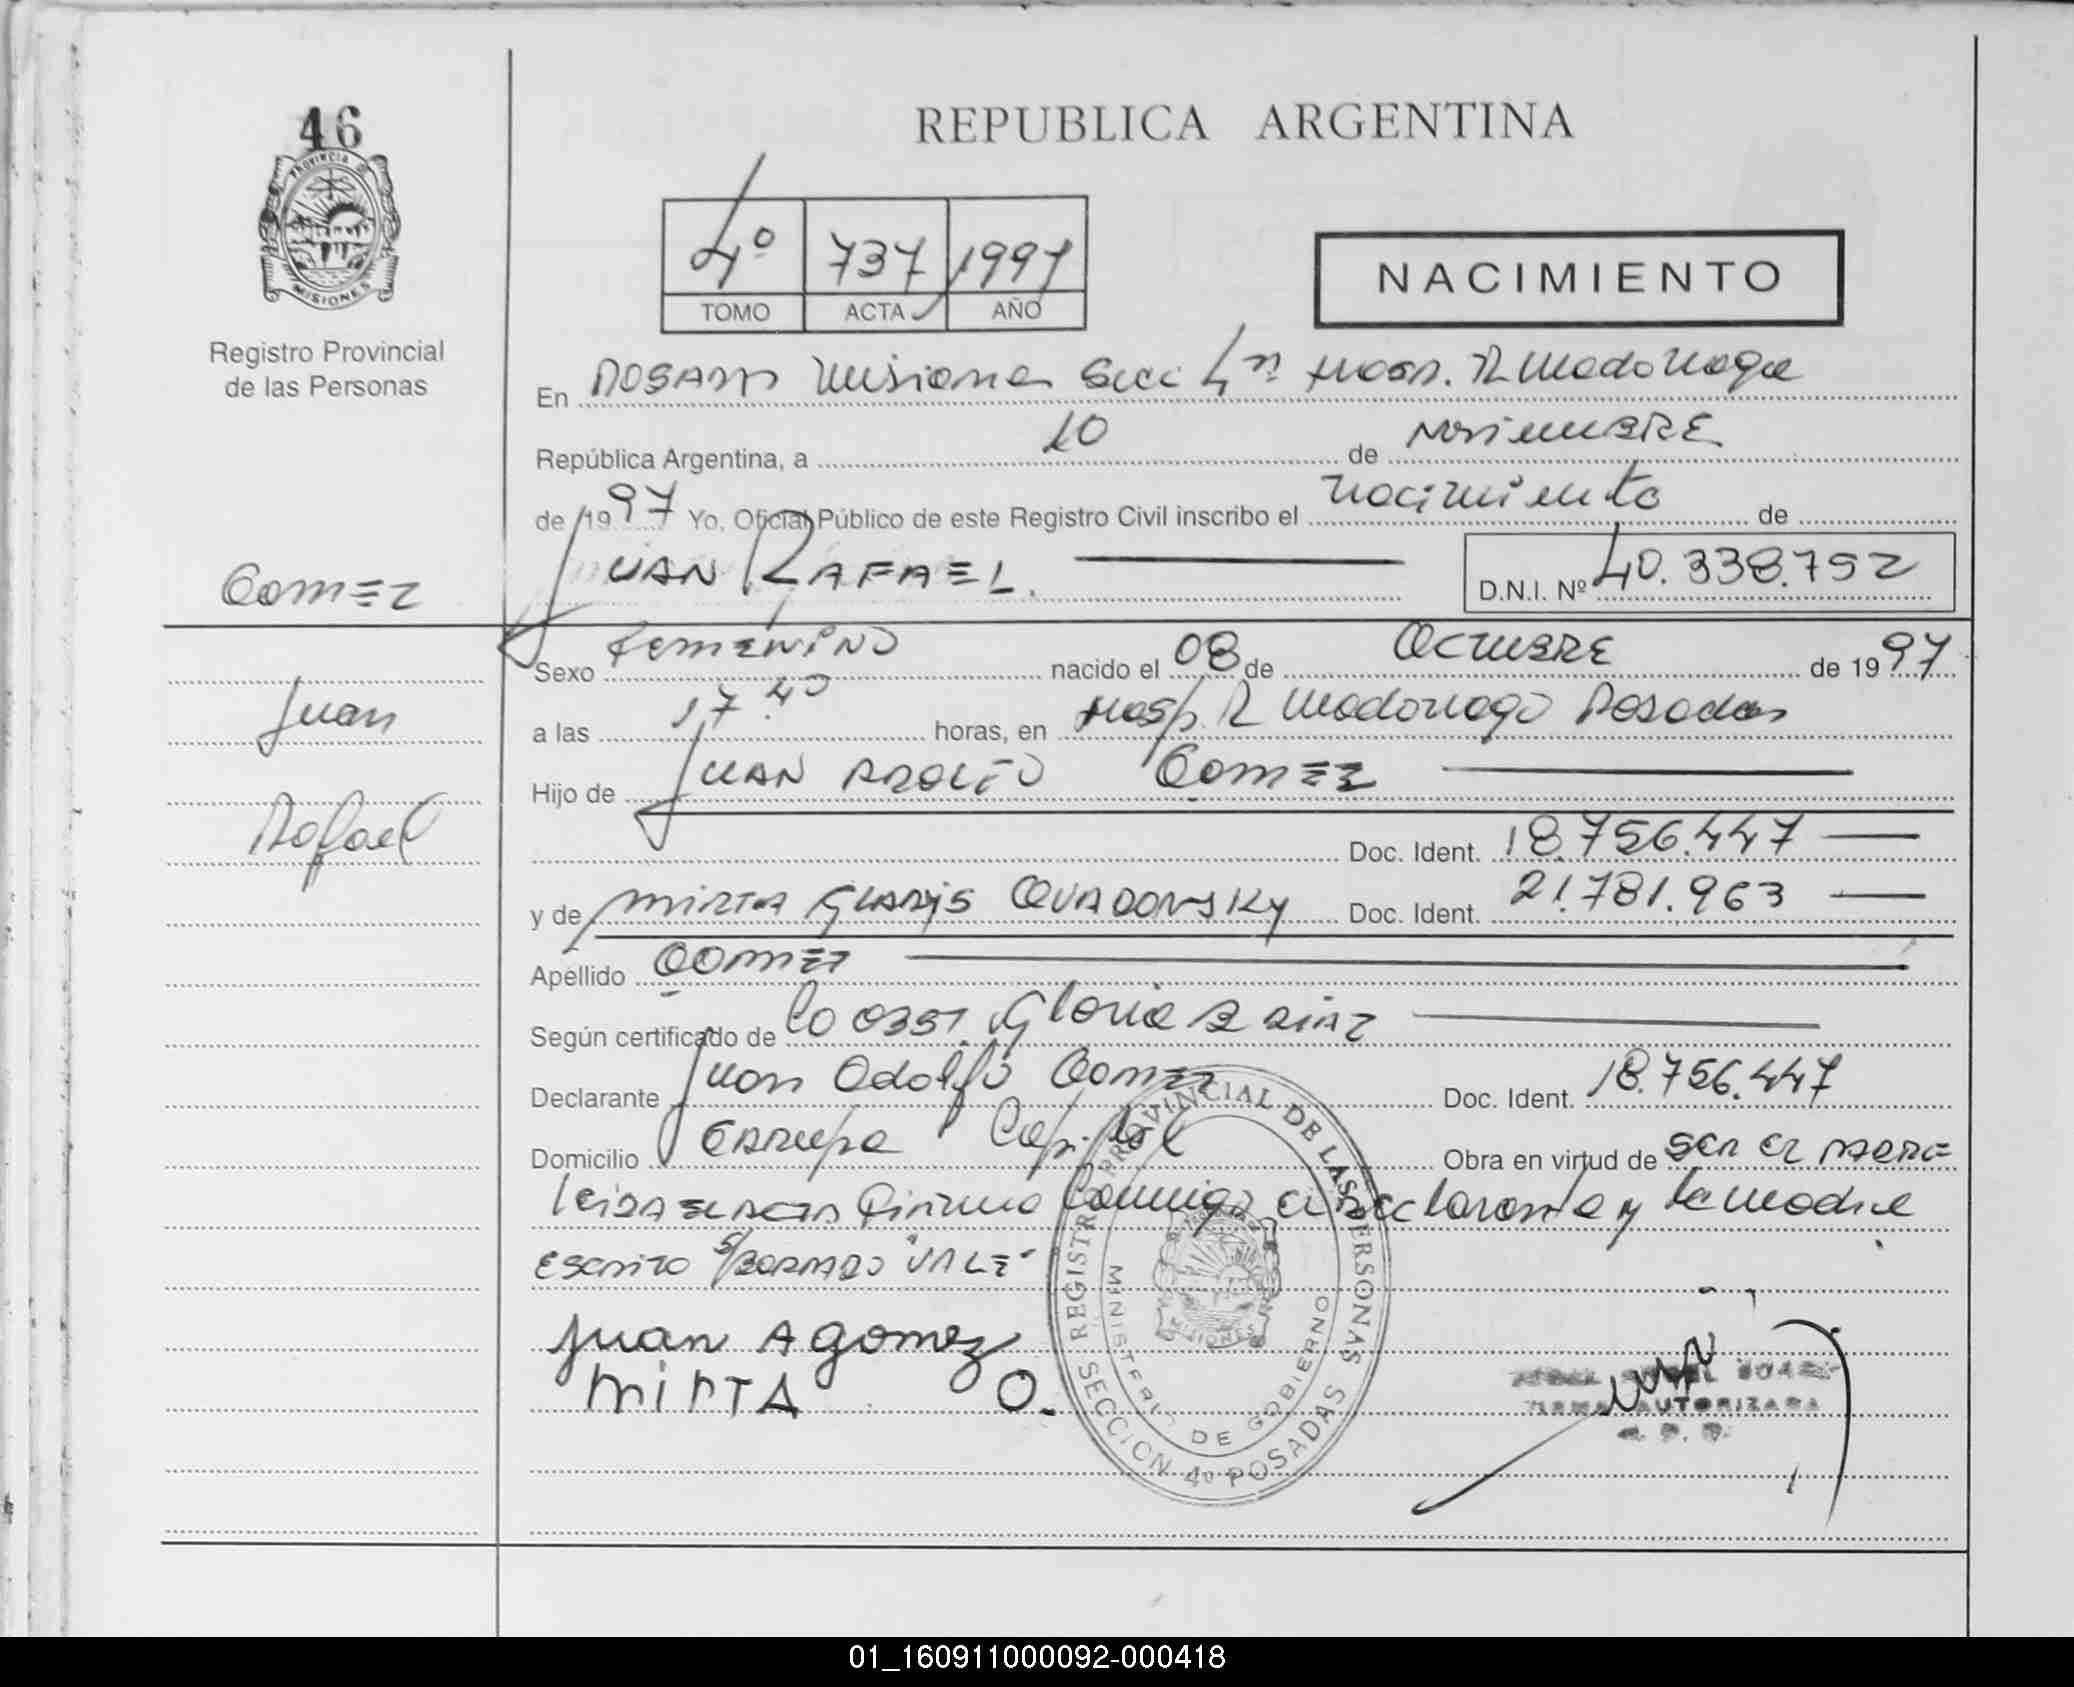 46
PROVINCIA DE
MISIONES
Registro Provincial
de las Personas
REPUBLICA ARGENTINA
4º 737 1997
TOMO ACTA AÑO
NACIMIENTO
En Posadas Misiones Secc 4ª Hosp. R Madariaga
República Argentina, a 10 de Noviembre
de 1997 Yo, Oficial Público de este Registro Civil inscribo el nacimiento de
JUAN RAFAEL.
D.N.I. Nº 40.338.752
Gomez
Juan
Rafael
Sexo Femenino nacido el 08 de Octubre de 1997
a las 17 40 horas, en Hosp. R Madariaga Posadas
Hijo de JUAN ADOLFO GOMEZ
Doc. Ident. 18.756.447
y de MIRTA GLADYS Doc. Ident. 21.781.963
Apellido GOMEZ
Según certificado de Gloria Diaz
Declarante Juan Adolfo Gomez Doc. Ident. 18.756.447
Domicilio Garupa Capital Obra en virtud de ser el padre
Leida el acta firma conmigo el declarante y la madre
Escrito s/borrado "VALE"
Juan A gomez
MIRTA O.
REGISTRO PROVINCIAL DE LAS PERSONAS
MINISTERIO DE GOBIERNO
MISIONES
SECCION 4º POSADAS
FIRMA AUTORIZADA
01_160911000092-000418